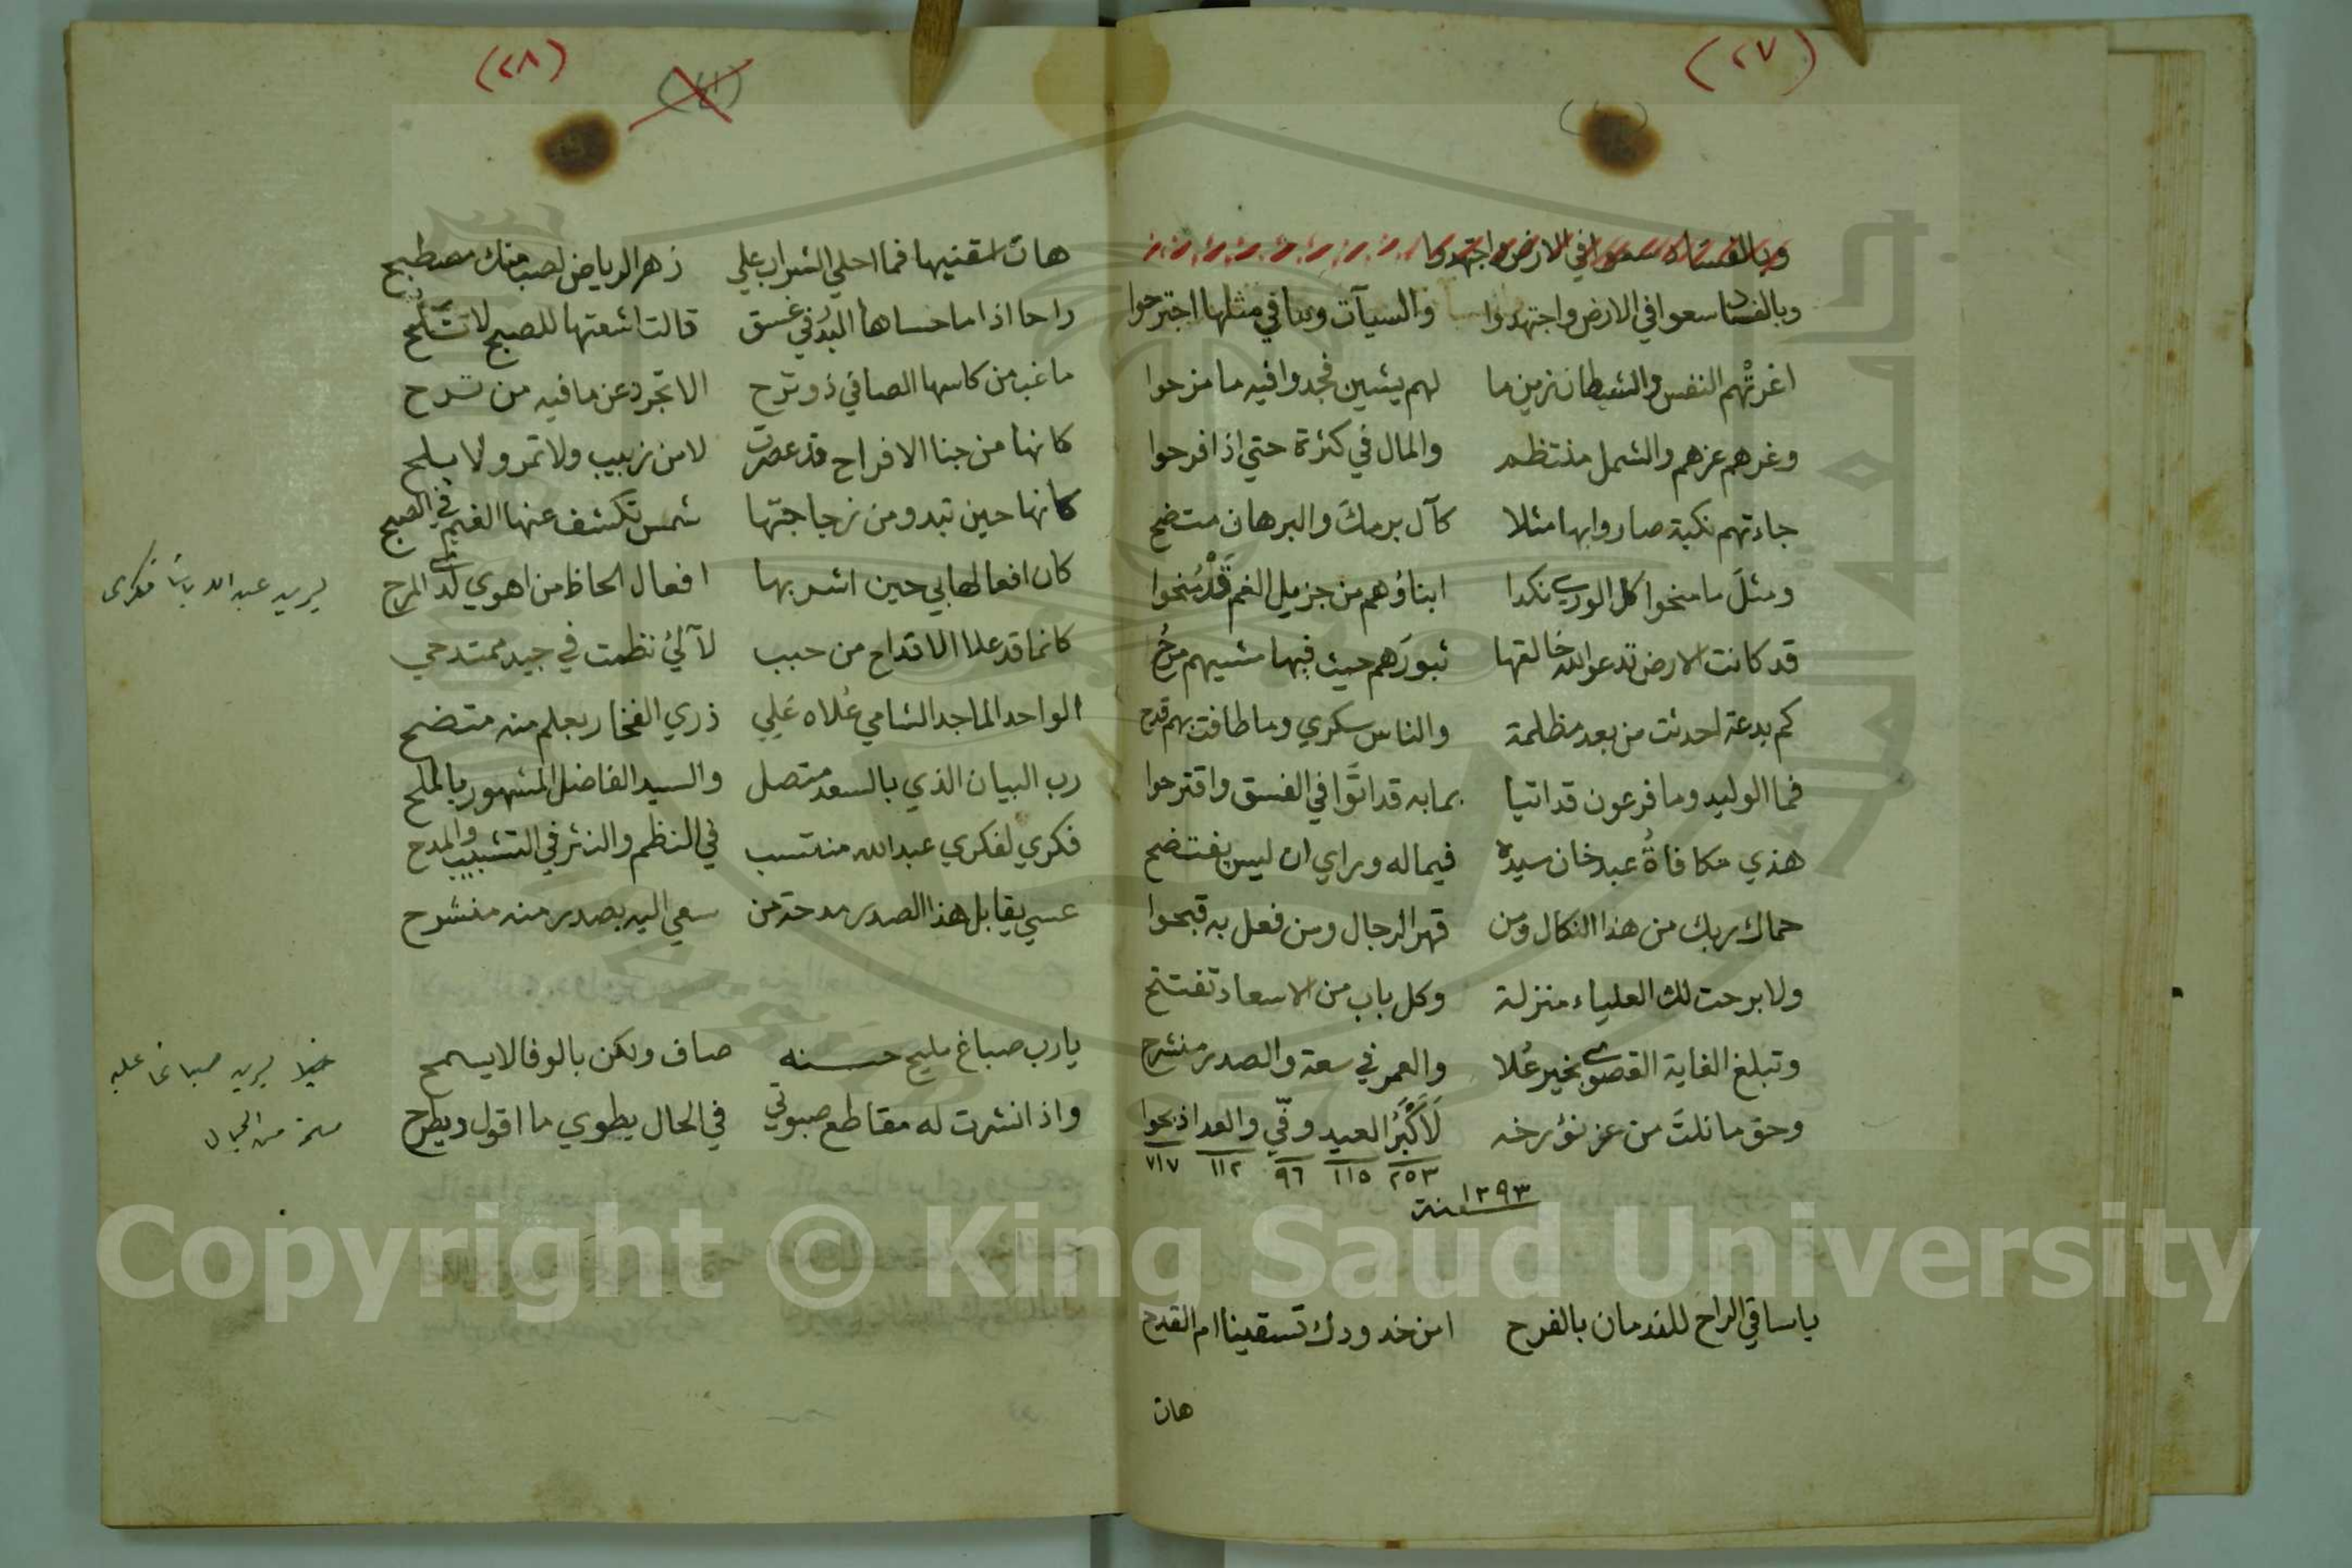 (٢٧)
وبالفساد سعوا في الارض واجتهدوا
وبالفساد سعوا في الارض واجتهدوا والسيآت وما في مثلها اجترحوا
اغرتهم النفس والشيطان زين ما لهم يشين فجدوا فيه ما مزحوا
وغرهم عزهم والشمل منتظم والمال في كثرة حتي اذا فرحوا
جاءتهم نكبة صاروا بها مثلا كآل برمك والبرهان متضح
ومثل ما منحوا كل الورى نكدا ابناؤهم من جزيل الغم قد منحوا
قد كانت الارض تدعو الله خالقها ثبورهم حيث فيها مشيهم مرح
كم بدعة احدثت من بعد مظلمة والناس سكري وما طافت بهم قدح
فما الوليد وما فرعون قد اتيا بما به قد اتوا في الفسق واقترحوا
هذي مكافاة عبد خان سيده فيما له وراي ان ليس يفتضح
حماك ربك من هذا النكال ومن قهر الرجال ومن فعل به قبحوا
ولا برحت لك العلياء منزلة وكل باب من الاسعاد تفتتح
وتبلغ الغاية القصوى بخير علا والعمر في سعة والصدر منشرح
وحق ما نلت من عز نؤرخه لأكبر العيد وفي والعدا ذبحوا
٢٥٣ ١١٥ ٩٦ ١١٢ ٧١٧
١٢٩٣
سنة
يا ساقي الراح للندمان بالفرح امن خدودك تسقينا ام القدح
هات
(٢٨)
هات اسقنيها فما احلي الشراب علي زهر الرياض لصب منك مصطبح
راحا اذا ما حساها البدر في غسق قالت اشعتها للصبح لا تلح
ما غب من كاسها الصافي ذو ترح الا تجرد عن ما فيه من ترح
كانها من جنا الافراح قد عصرت لا من زبيب ولا تمر ولا بلح
كانها حين تبدو من زجاجتها شمس تكشف عنها الغيم في الصبح
كان افعالها بي حين اشربها افعال الحاظ من اهوي لدى المرح
كانما قد علا الاقداح من حبب لآلئ نظمت في جيد ممتدحي
الواحد الماجد السامي علاه علي ذري الفخار بعلم منه متضح
رب البيان الذي بالسعد متصل والسيد الفاضل المشهور بالملح
فكري لفكري عبد الله منتسب في النظم والنثر في التشبيب والمدح
عسي يقابل هذا الصدر مدحة من سعي اليه بصدر منه منشرح
يريد عبد الله باشا فكرى
يا رب صباغ مليح حسنه صاف ولكن بالوفا لا يسمح
واذا نشرت له مقاطع صبوتي في الحال يطوي ما اقول ويطرح
يريد صباغا عليه
Copyright © King Saud University